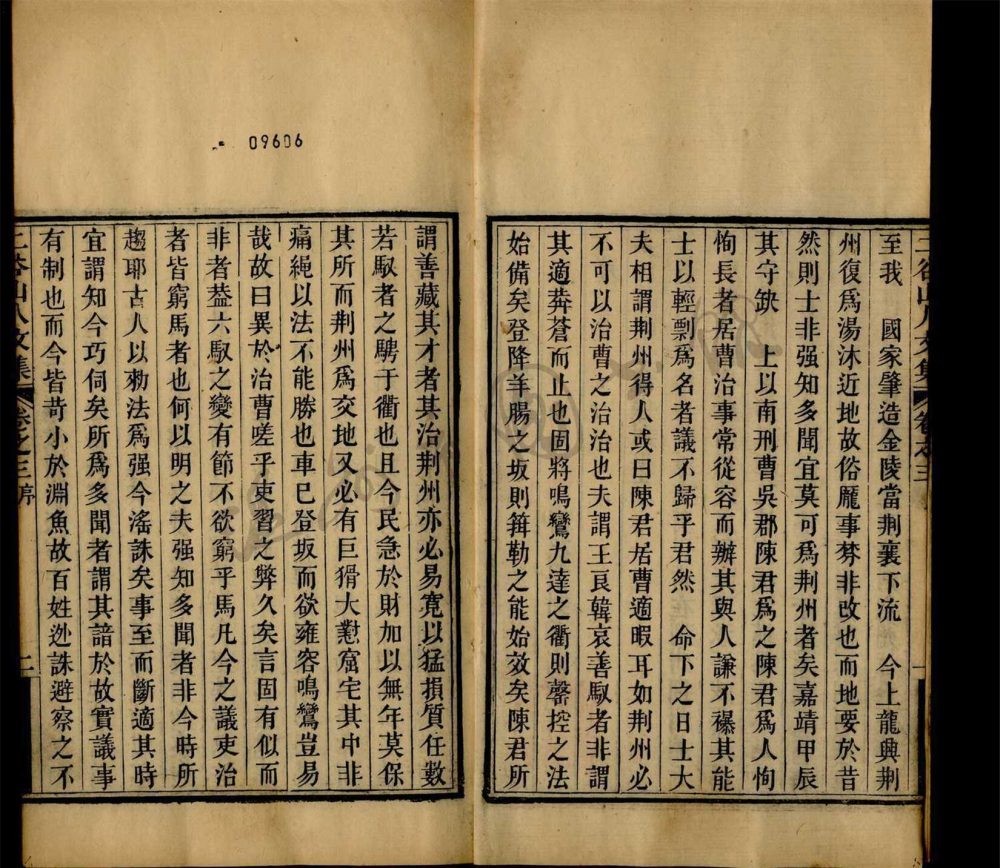 至我 國家肇造金陵當荆襄下流 今上龍興荆
州復爲湯沐近地故俗厖事棼非改也而地要於昔
然則士非强知多聞宜莫可爲荆州者矣嘉靖甲辰
其守缺 上以南刑曹吳郡陳君爲之陳君爲人恂
恂長者居曹治事常從容而辦其與人謙不襮其能
士以輕剽爲名者議不歸乎君然 命下之日士大
夫相謂荆州得人或曰陳君居曹適暇耳如荆州必
不可以治曹之治治也夫謂王良韓哀善馭者非謂
其適莽蒼而止也固將鳴鸞九達之衢則罄控之法
始備矣登降羊腸之坂則箝勒之能始效矣陳君所
二谷山人文集 卷之三
一
謂善藏其才者其治荆州亦必易寛以猛損質任數
若馭者之騁于衢也且今民急於財加以無年莫保
其所而荆州爲交地又必有巨猾大憝窟宅其中非
痛繩以法不能勝也車巳登坂而欲雍容鳴鸞豈易
哉故曰異於治曹嗟乎吏習之弊久矣言固有似而
非者葢六馭之變有節不欲窮乎馬凡今之議吏治
者皆窮馬者也何以明之夫强知多聞者非今時所
趨耶古人以勑法爲强今滛誅矣事至而斷適其時
宜謂知今巧伺矣所爲多聞者謂其諳於故實議事
有制也而今皆苛小於淵魚故百姓迯誅避察之不
二谷山人文集 卷之三 序
二
09606